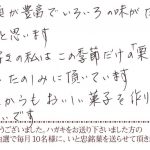 が豊富でいろいろの味が
と思います
きの私はこの季節だけの「栗
たのしみに頂いています
からもおいしい菓子を作り
いです
うございました。ハガキをお送り下さいました方の
選で毎月10名様に、いと忠銘菓を送らせて頂き